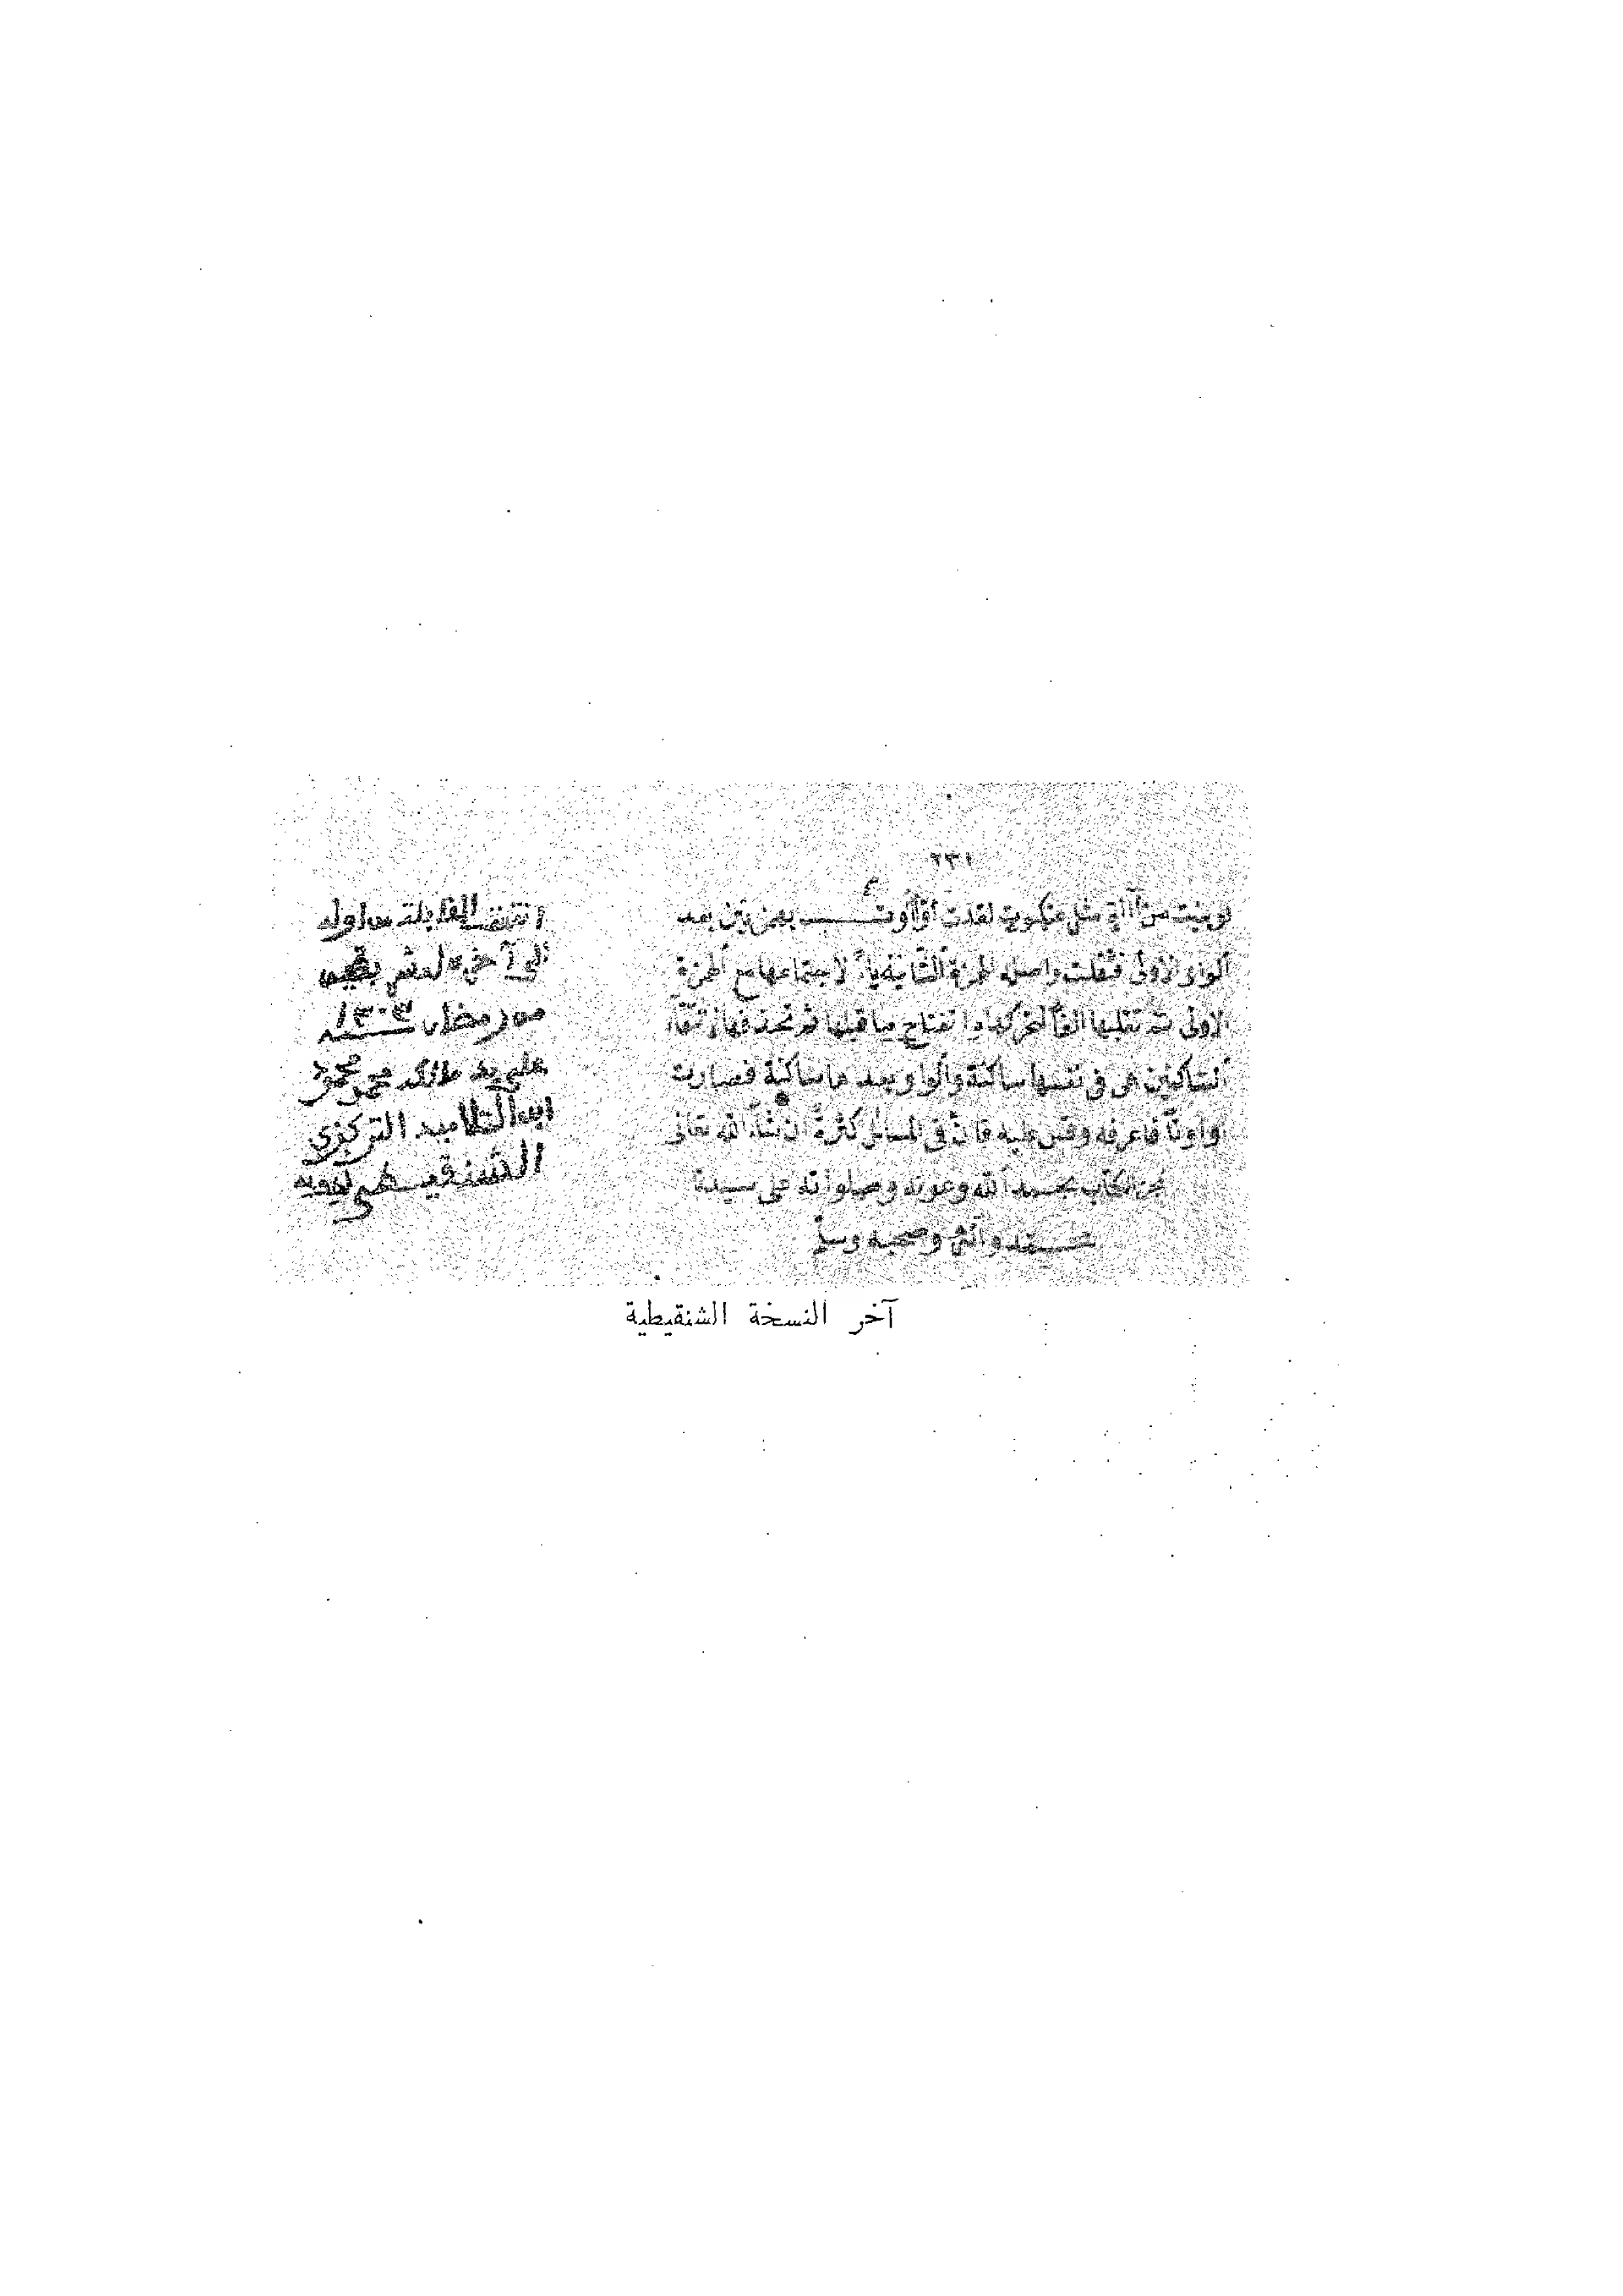 ٢٣١
لو بنيت من آءة مثل عنكبوت لقلت أوأوت بهمزتين بعد
الواو الأولى فثقلت واصل الهمزة الثانية ياء لاجتماعها مع الهمزة
الأولى ثم تقلبها ألفا لتحركها وانفتاح ما قبلها ثم تحذفها لالتقاء
الساكنين هي في نفسها ساكنة والواو بعدها ساكنة فصارت
فاعرفه وقس عليه فان في المسائل كثرة ان شاء الله تعالى
نجز الكتاب بحمد الله وعونه وصلواته على سيدنا
محمد وآله وصحبه وسلم
انتهت المقابلة من اوله
الى آخره لعشر بقين
من رمضان سنة ١٣٠٣
على يد مالكه محمد محمود
ابن التلاميد التركزي
الشنقيطي
آخر النسخة الشنقيطية